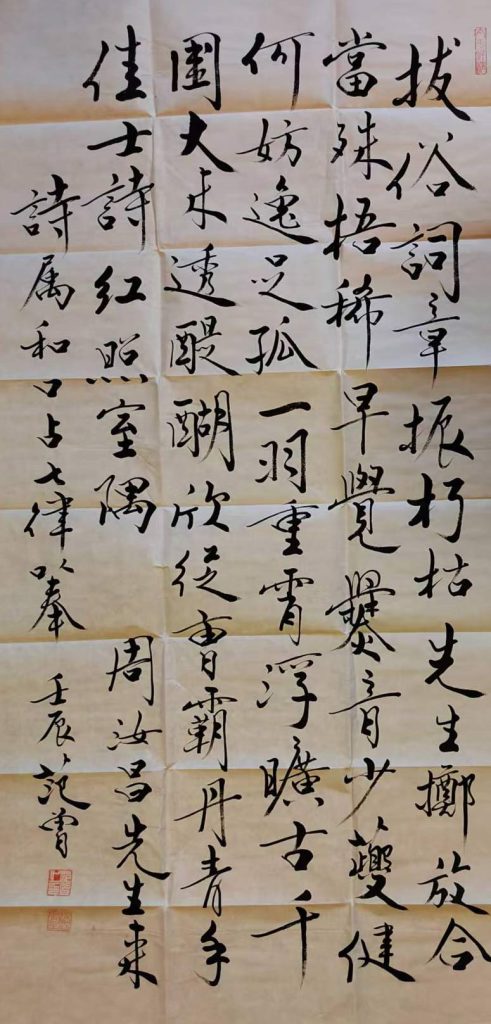 拔俗詞章振朽枯先生擲放合
當殊梧稀早覺爨音少夔健
何妨逸足孤一羽重霄浮曠古千
圍大木透醍醐欣從曹霸丹青手
佳士詩紅照室隅 周汝昌先生來
詩属和口占七律以奉 壬辰范曾